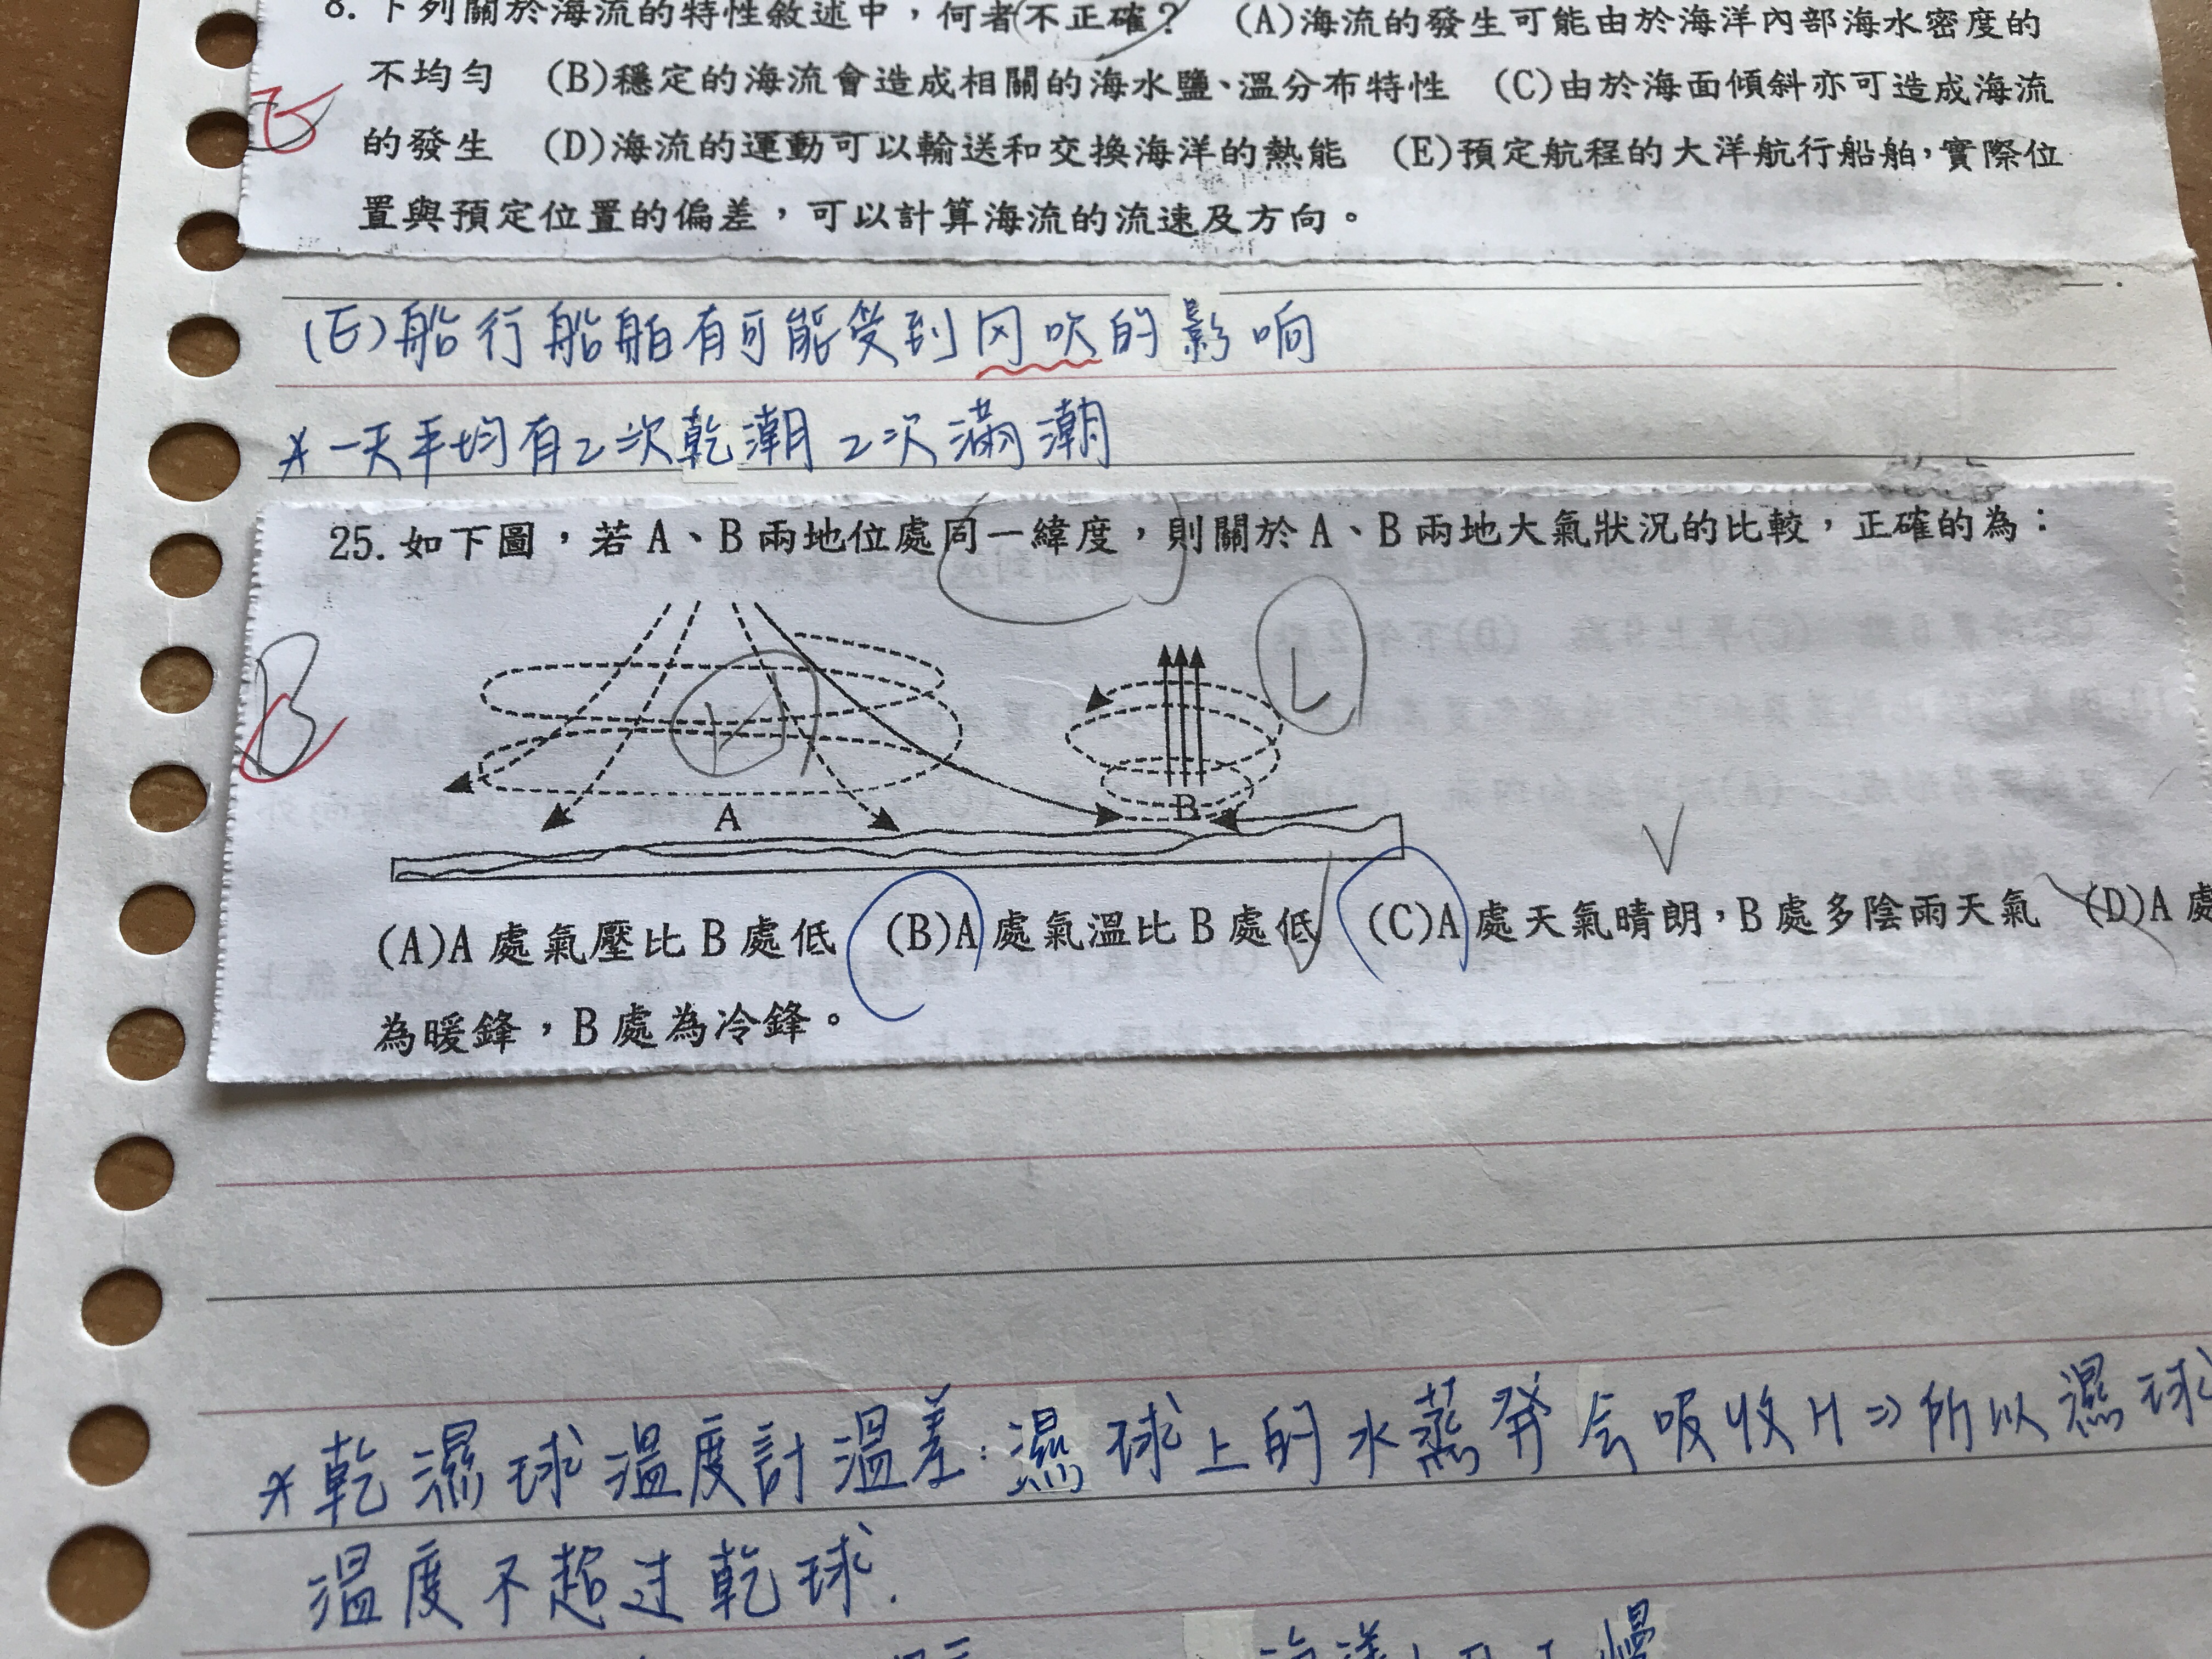 8. 下列關於海流的特性敘述中，何者不正確？ (A)海流的發生可能由於海洋內部海水密度的
不均勻 (B)穩定的海流會造成相關的海水鹽、溫分布特性 (C)由於海面傾斜亦可造成海流
的發生 (D)海流的運動可以輸送和交換海洋的熱能 (E)預定航程的大洋航行船舶，實際位
置與預定位置的偏差，可以計算海流的流速及方向。
(E)船行船舶有可能受到冈吹的影响
*一天平均有2次乾潮2次滿潮
25. 如下圖，若A、B兩地位處同一緯度，則關於A、B兩地大氣狀況的比較，正確的為：
H
L
B
A
B
(A)A處氣壓比B處低 (B)A處氣溫比B處低 (C)A處天氣晴朗，B處多陰雨天氣 (D)A處
為暖鋒，B處為冷鋒。
*乾濕球溫度計溫差：濕球上的水蒸發会吸收H⇒所以濕球
溫度不超过乾球.